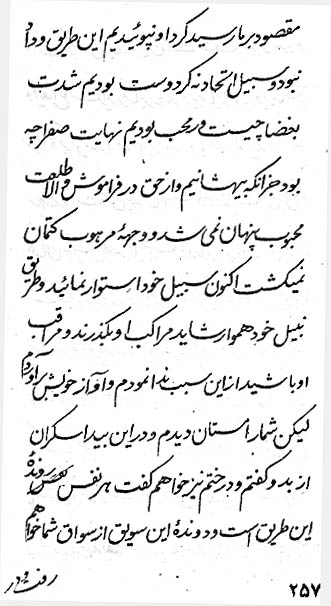 مقصود بر ما رسید گرد او نپوئیدیم این طریق وداد
نبود و سبیل اتحاد نه گر دوست بودیم شدت
بغضا چیست ور محب بودیم نهایت صفرا چه
بود جز انکه بیهشانیم و از حق در فراموش والا طلعت
محبوب پنهان نمی شد و وجههٔ مرهوب کتمان
نمیگشت اکنون سبیل خود استوار نمائید و طریق
نبیل خود هموار شاید مراکب او بگذرند و مراقب
او باشید از این سبب ندا نمودم و آواز خویش برآوردم
لیکن شما را مستان دیدم و در این بیدا سکران
از بدو گفتم و در ختم نیز خواهم گفت هر نفس روندهٔ
این طریق است و دوندهٔ این سویق از سواق شما خواهم
رفت و در
۲۵۷